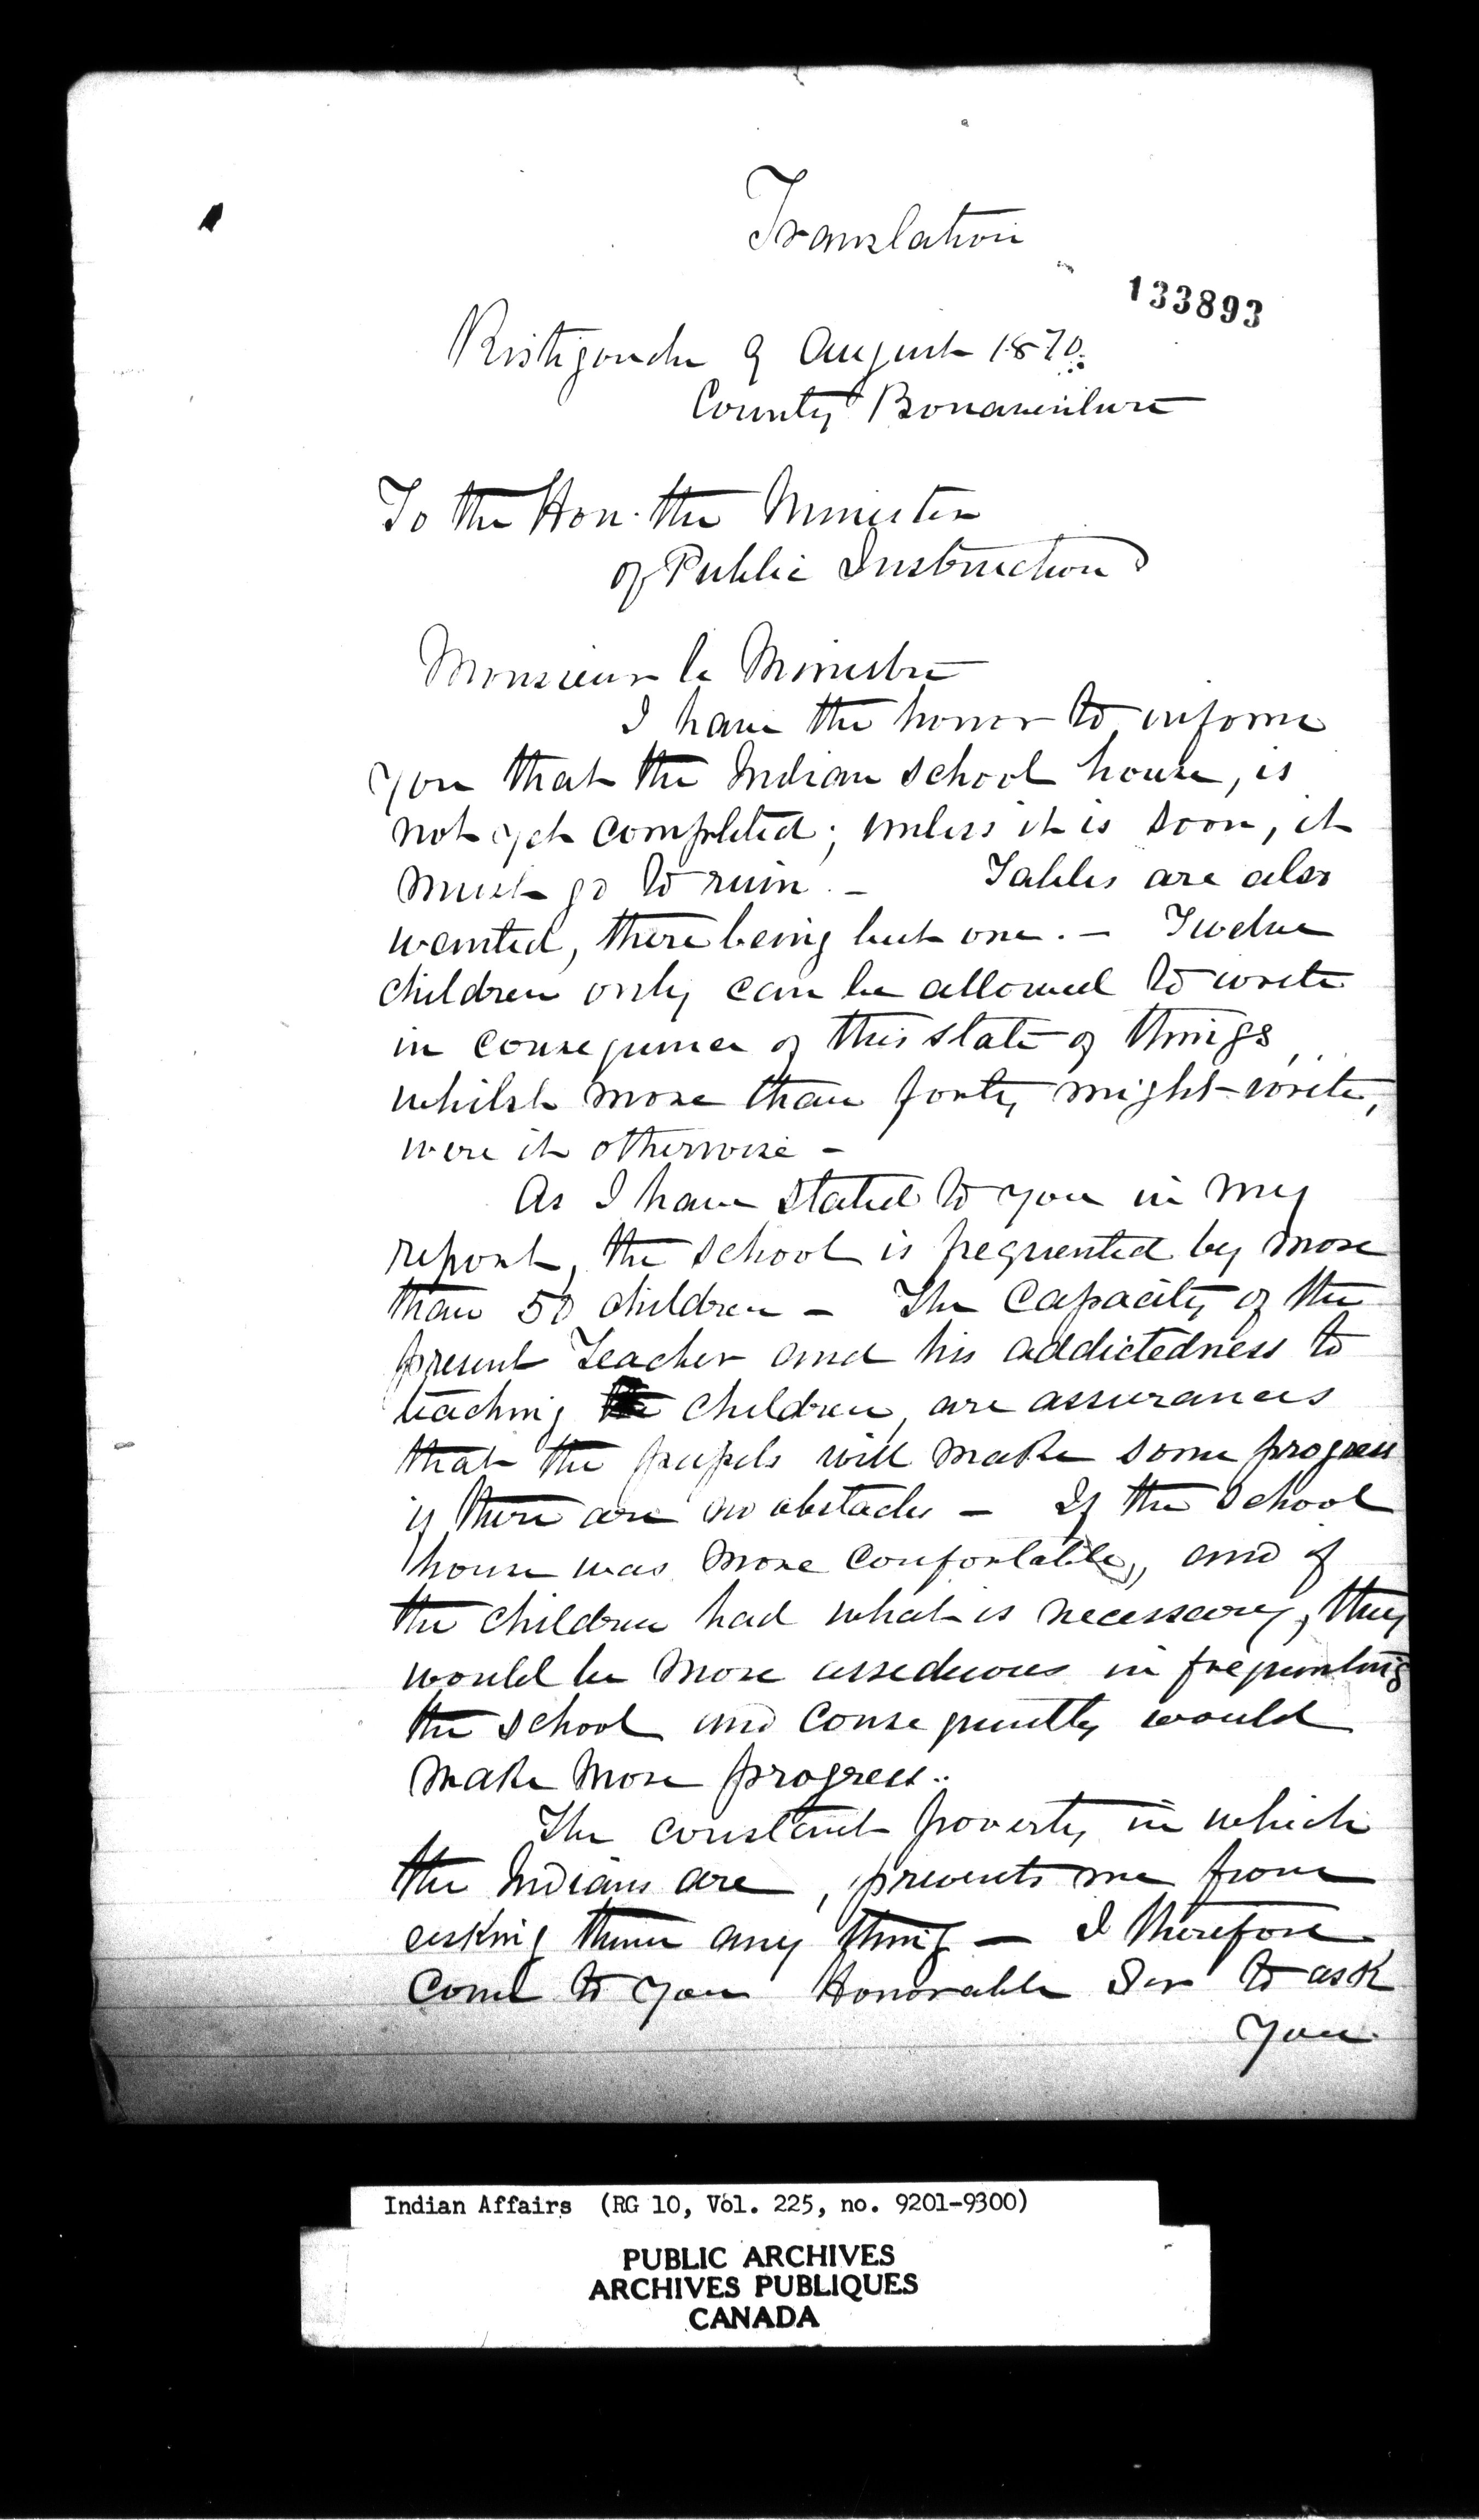 Translation
133893
Ristigouche 9 August 1870.
County Bonaventure
To the Hon. the Minister
of Public Instruction
Monsieur le Ministre
I have the honor to inform
you that the Indian school house, is
not yet completed; unless it is soon, it
must go to ruin. — Tables are also
wanted, there being but one. — Twelve
children only can be allowed to write
in consequence of this state of things,
whilst more than forty might write,
were it otherwise —
As I have stated to you in my
report, the school is frequented by more
than 50 children — The Capacity of the
present Teacher and his addictedness to
teaching children, are assurances
that the pupils will make some progress
if there are no obstacles — If the school
house was more confortable, and if
the children had what is necessary, they
would be more assiduous in frequenting
the school and consequently would
make more progress..
The constant poverty in which
the Indians are, prevents me from
asking them any thing — I therefore
come to you Honorable Sir to ask
you
Indian Affairs (RG 10, Vol. 225, no. 9201-9300)
PUBLIC ARCHIVES
ARCHIVES PUBLIQUES
CANADA